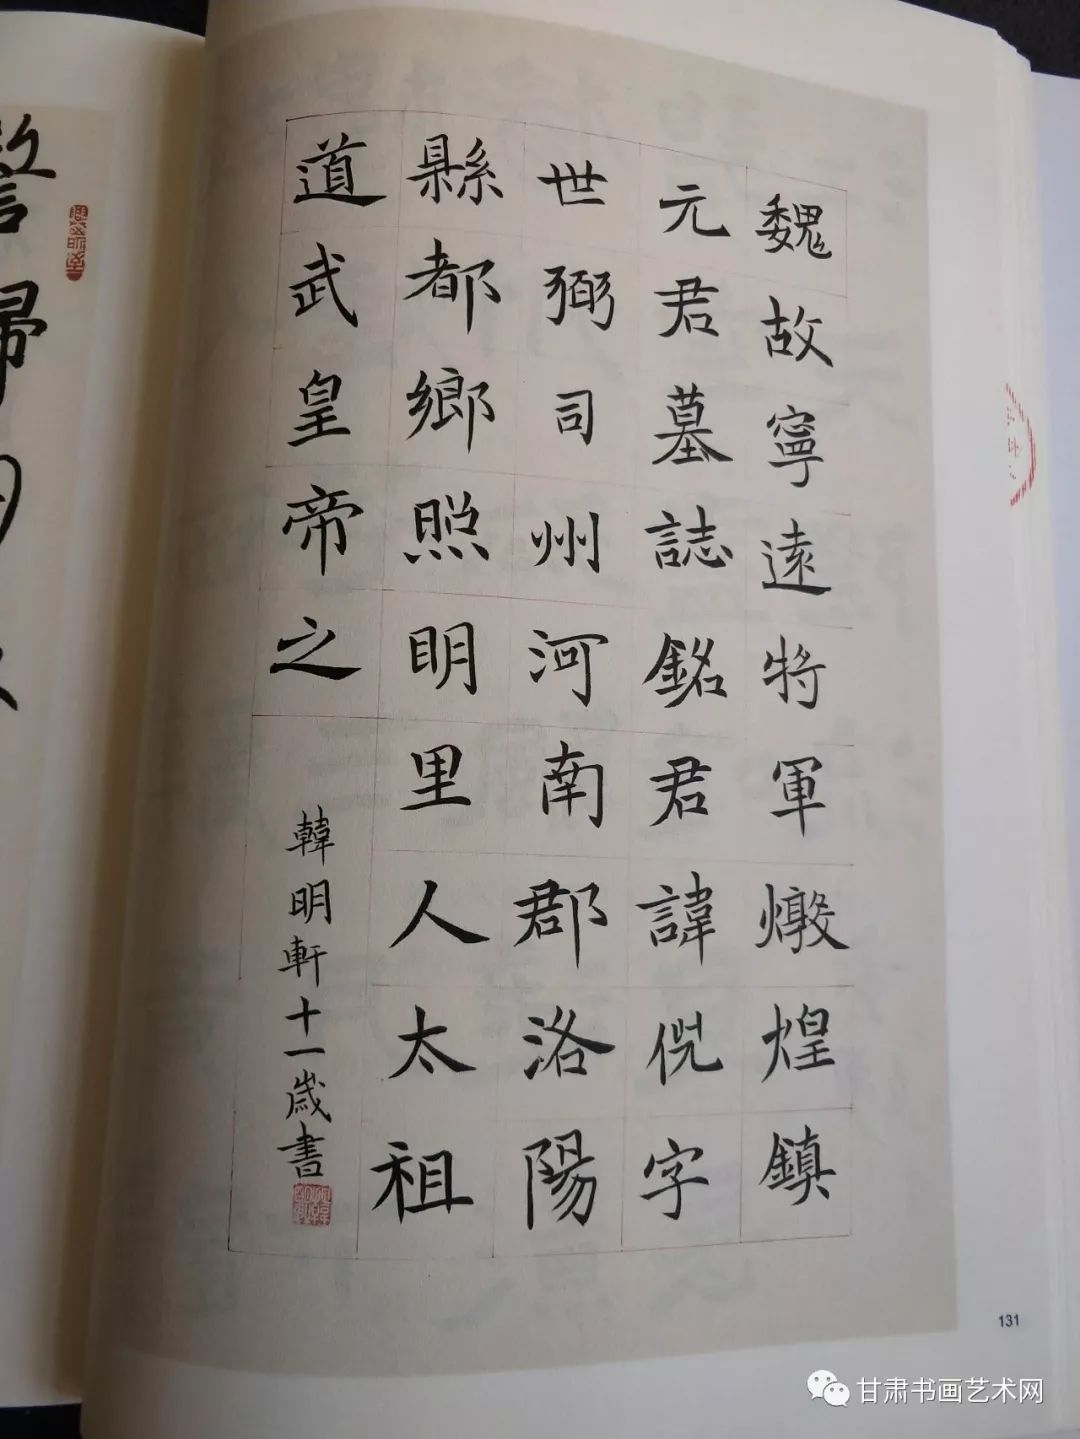 魏故寧遠將軍燉煌鎮
元君墓誌銘君諱倪字
世弼司州河南郡洛陽
縣都鄉照明里人太祖
道武皇帝之
韓明軒十一歲書
歸
131
甘肃书画艺术网